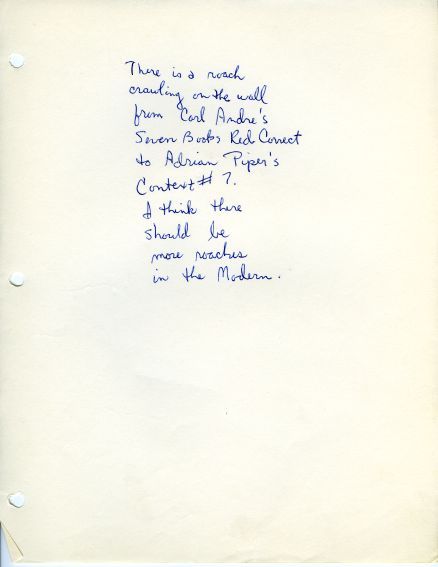 There is a roach
crawling on the wall
from Carl Andre's
Seven Books Red Correct
to Adrian Piper's
Context # 7.
I think there
should be
more roaches
in the Modern.